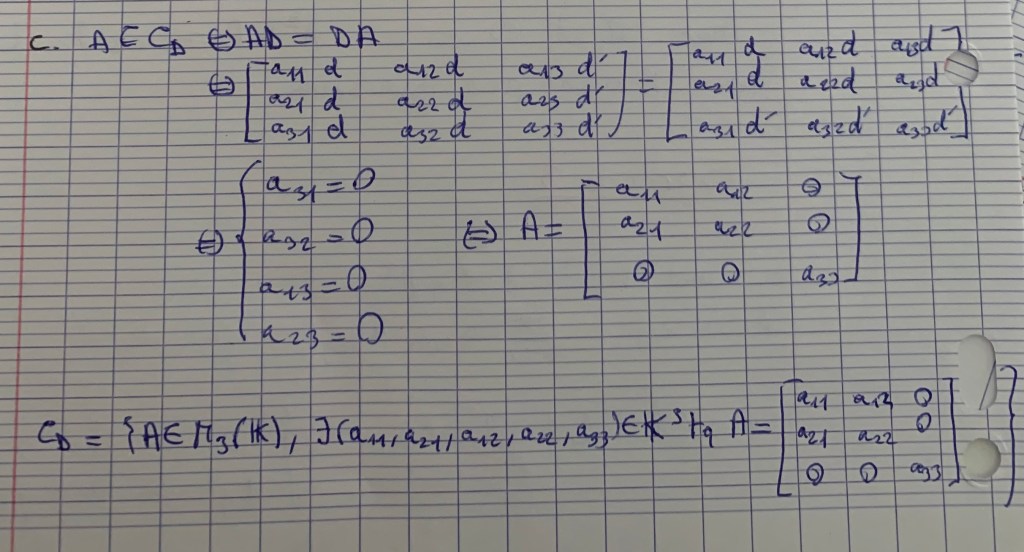 c. A ∈ C_D ⇔ AD = DA
⇔ [a11 d a12 d a13 d' ; a21 d a22 d a23 d' ; a31 d a32 d a33 d'] = [a11 d a12 d a13 d ; a21 d a22 d a23 d ; a31 d' a32 d' a33 d']
⇔ { a31 = 0 ; a32 = 0 ; a13 = 0 ; a23 = 0 ⇔ A = [a11 a12 0 ; a21 a22 0 ; 0 0 a33]
C_D = {A ∈ M_3(K), ∃(a11, a21, a12, a22, a33) ∈ K^5 tq A = [a11 a12 0 ; a21 a22 0 ; 0 0 a33]}